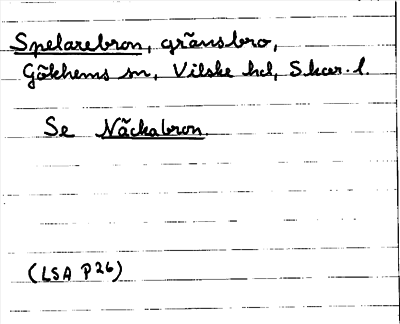 Spelarebron, gränsbro,
Gökhems sn, Vilske hd, Skar. l.
Se Näckabron.
(LSA P26)